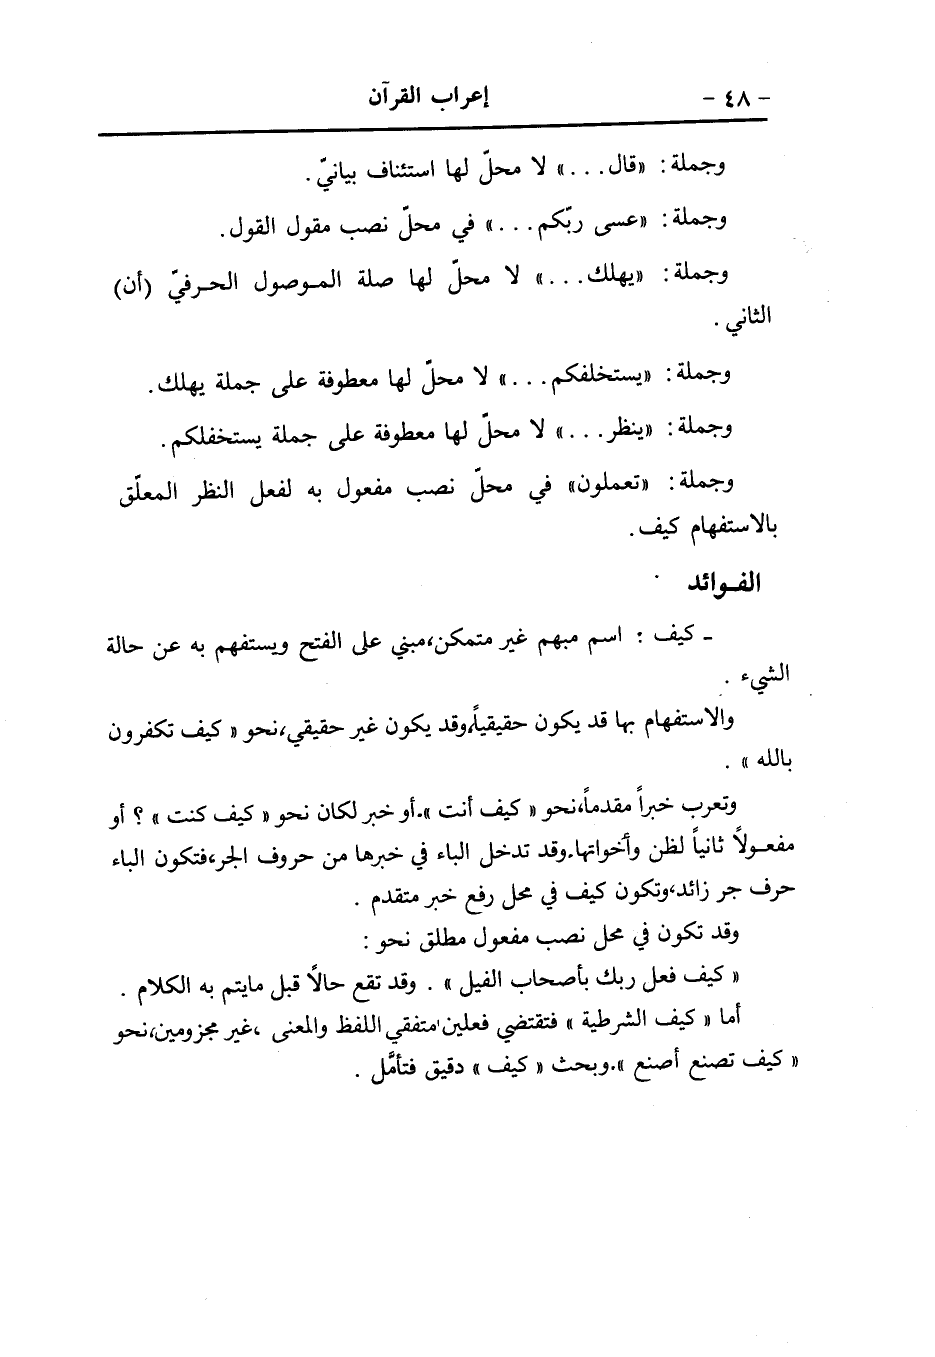 - ٤٨ - إعراب القرآن
وجملة: «قال. . .» لا محلّ لها استئناف بيانيّ.
وجملة: «عسى ربّكم. . .» في محلّ نصب مقول القول.
وجملة: «يهلك. . .» لا محلّ لها صلة الموصول الحرفيّ (أن)
الثاني.
وجملة: «يستخلفكم. . .» لا محلّ لها معطوفة على جملة يهلك.
وجملة: «ينظر. . .» لا محلّ لها معطوفة على جملة يستخفلكم.
وجملة: «تعملون» في محلّ نصب مفعول به لفعل النظر المعلّق
بالاستفهام كيف.
الفوائد
ـ كيف : اسم مبهم غير متمكن،مبني على الفتح ويستفهم به عن حالة
الشيء .
والاستفهام بها قد يكون حقيقياً،وقد يكون غير حقيقي،نحو « كيف تكفرون
بالله » .
وتعرب خبراً مقدماً،نحو « كيف أنت ».أو خبر لكان نحو « كيف كنت » ؟ أو
مفعولاً ثانياً لظن وأخواتها.وقد تدخل الباء في خبرها من حروف الجر،فتكون الباء
حرف جر زائد،وتكون كيف في محل رفع خبر متقدم .
وقد تكون في محل نصب مفعول مطلق نحو :
« كيف فعل ربك بأصحاب الفيل » . وقد تقع حالاً قبل مايتم به الكلام .
أما « كيف الشرطية » فتقتضي فعلين متفقي اللفظ والمعنى ،غير مجزومين،نحو
« كيف تصنع أصنع ».وبحث « كيف » دقيق فتأمَّل .